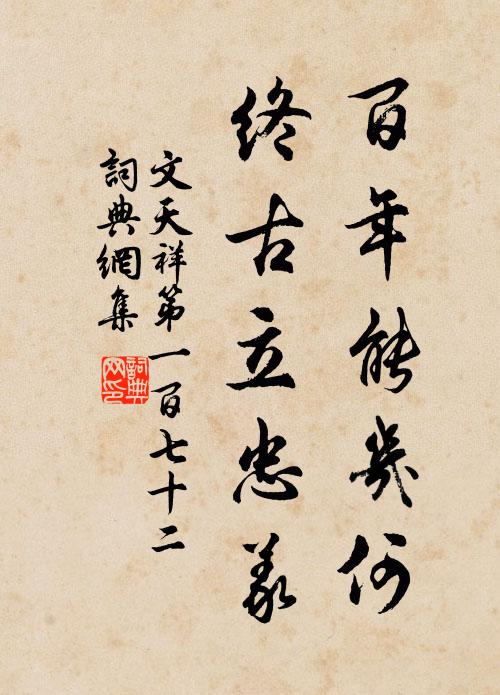 百年能幾何
終古立忠義
文天祥第一百七十二
詞典網集
詞典网印